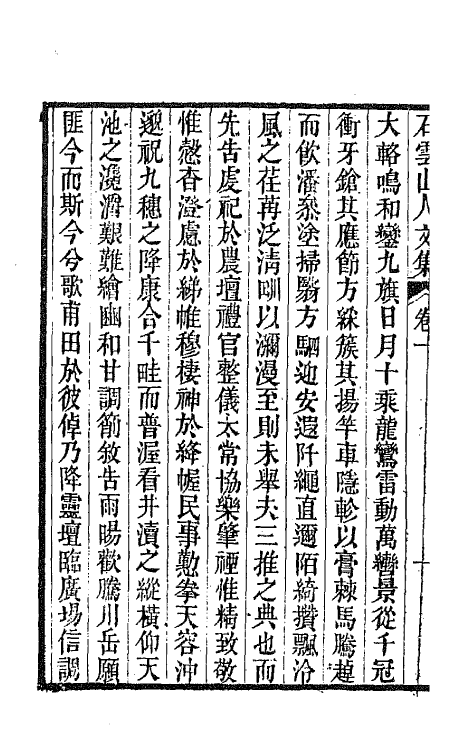 石雲山人文集 卷一 十
大輅鳴和鑾九旗日月十乘龍鸞雷動萬轡景從千冠
衝牙鎗其應節方綵簇其揚竿車隱軫以膏棘馬騰趠
而飲潘泰塗掃翳方駟迎安遐阡繩直邇陌綺攢飄泠
風之荏苒泛清甽以瀰漫至則未舉夫三推之典也而
先告虔祀於農壇禮官整儀太常協樂肇禋惟精致敬
惟慤杳澄慮於綈帷穆棲神於絳幄民事懃拳天容沖
邈祝九穗之降康合千畦而普渥看井瀆之縱橫仰天
池之瀺灂艱難繪豳和甘調籥敘告雨暘歡騰川岳願
匪今而斯今兮歌甫田於彼倬乃降靈壇臨廣場信調